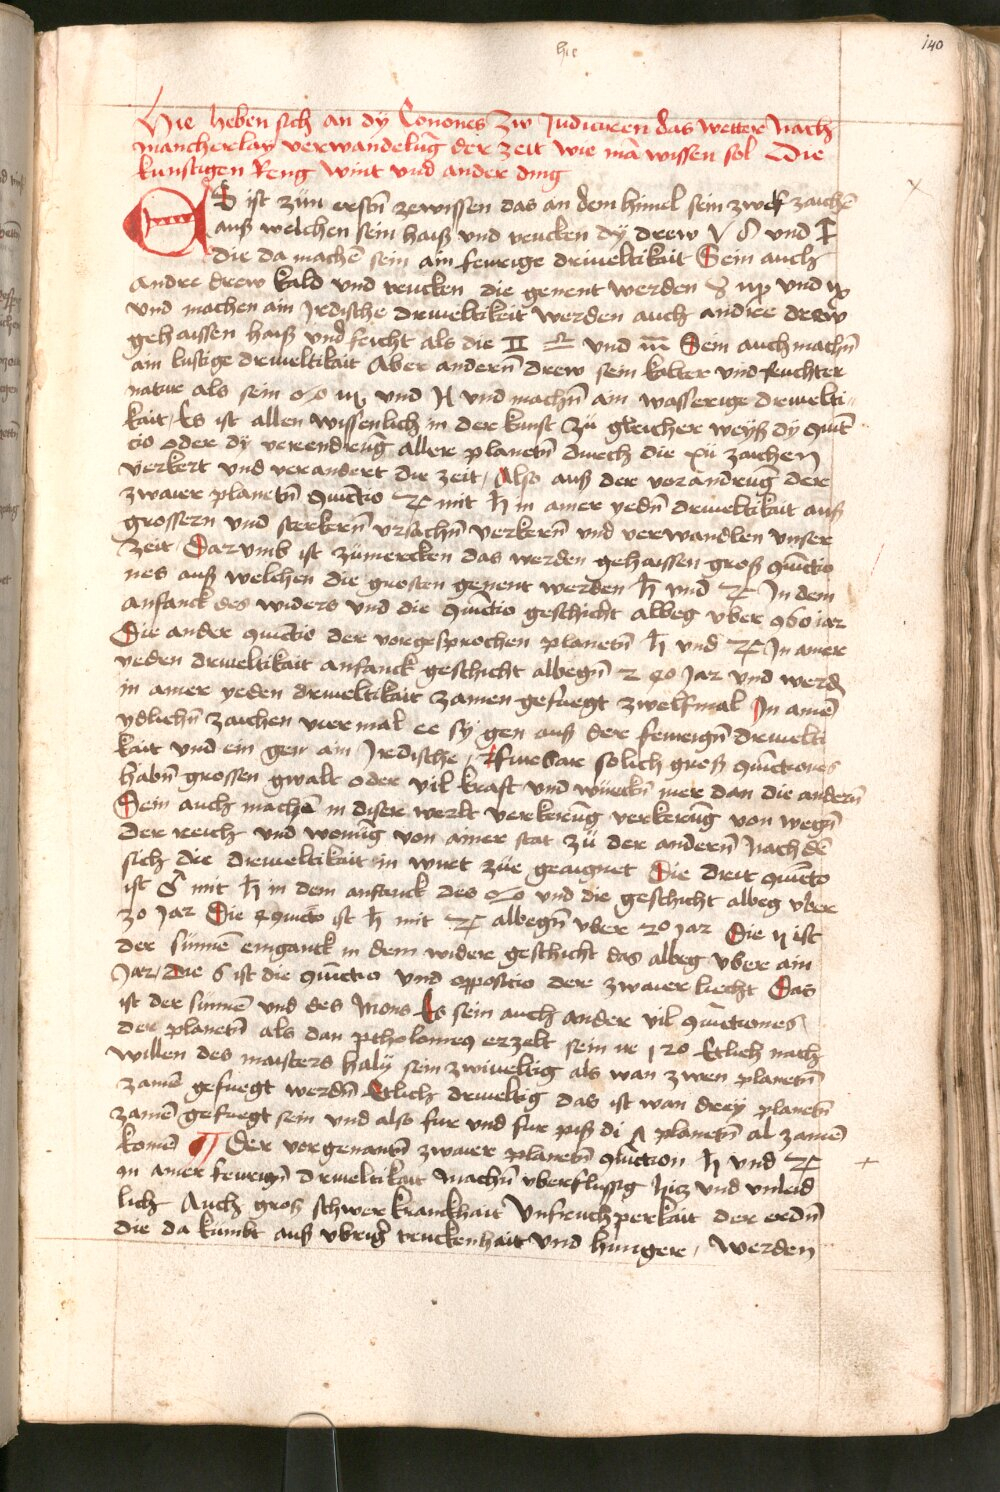 140
hie
Hie heben sich an dy Canones Zw Judiciren das wetter Nach
mancherlay verwandelūg der zeit wie mā wissen sol Die
kunftigen Reng wint vnd ander ding
ES ist zūm erstn̄ zewissen das an dem himel sein zwelf zaichē
auß welchen sein haiß vnd trucken dÿ drew ♈ ♌ und ♐
die da machē sein ain feurige driueltikait Sein auch
andre drew kald vnd trucken die genent werden ♉ ♍ vnd ♑
vnd machen ain Irdische driueltikeit werden auch andre drew
gehaissen haiß vnd feicht als die ♊ ♎ vnd ♒ Sein auch machn̄
ain luftige driueltikait Aber andern̄ drew sein kalter vnd feuchter
natur als sein ♋ ♏ vnd ♓ vnd machn̄ ain wasserige driuelti
kait / Es ist allen wissenlich in der kunst Zū gleicher weyß dÿ 9iūc
cio oder dÿ verendrūg aller planetn̄ durch die xij zaichen
verkert vnd verandert die zeit / Also auß der verandrūg der
zwaier planetn̄ 9iūctio ♃ mit ♄ in ainer yedn̄ driueltikait auß
grossern vnd sterkern̄ vrsachn̄ verkern̄ vnd verwandlen vnser
zeit / Darumb ist zūmercken das werden gehaissen groß 9iūctio
nes auß welchen die grosten genent werden ♄ vnd ♃ In dem
anfanck des widers vnd die 9iūctio geschicht albeg vber 960 iar
Die ander 9iūctio der vorgesprochen planetn̄ ♄ vnd ♃ In ainer
yeden driueltikait anfanck geschicht albegn̄ 240 Jar vnd werd
in ainer yeden driueltikait zamen gefuegt zwelfmal In ainē
ydlichn̄ zaichen vier mal ee sy gen auß der feurign̄ driuelti
kait vnd ein gen ain Irdische / Furbar solich groß 9iūctiones
habn̄ grossen gwalt oder vil kraft vnd würckn̄ mer dan die andern̄
Sein auch machē in diser werlt verkerūg verkerūg von wegn̄
der reich vnd wonūg von ainer stat zū der andern̄ Nach dē
sich die driueltikait im wirt züe geaignet Die drit 9iūcto
ist ♂ mit ♄ in dem anfanck des ♋ vnd die geschicht albeg vber
30 Jar Die 4 9iūcto ist ♄ mit ♃ albegn̄ vber 20 Jar Die 5 ist
der sūnnē eingank in dem wider geschicht das albeg vber ain
Jar / Die 6 ist die 9iūctio vnd oppositio der zwaier liecht Das
ist der sunnē vnd des Mons Es sein auch ander vil 9iūctiones
der planetn̄ als dan ptholomeq erzelt sein ir 120 Etlich nach
willen des maisters halÿ sein zwiueltig als wan zwen planetn̄
zamē gefuegt werdn̄ Etlich driueltig das ist wan drey planetn̄
zamē gefuegt sein vnd also fur vnd fur piß di 7 planetn̄ al zamē
komē ¶ Der vorgenantn̄ zwaier planetn̄ 9iūction ♄ vnd ♃
in ainer feurign̄ driueltikait Machn̄ vberflussig hicz vnd vnleid
lich Auch gros schwer kranckhait Vnfruchperkait der erdn̄
die da kūmbt auß vbriḡ truckenhait vnd hunger / werden